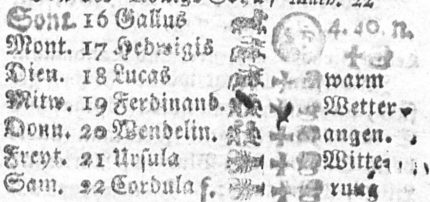 Sont. 16 Gallus 4. 40. n.
Mont. 17 Hedwigis
Dien. 18 Lucas warm
Mitw. 19 Ferdinand. Wetter
Donn. 20 Wendelin. angen.
Freyt. 21 Ursula Witte
Sam. 22 Cordula rung